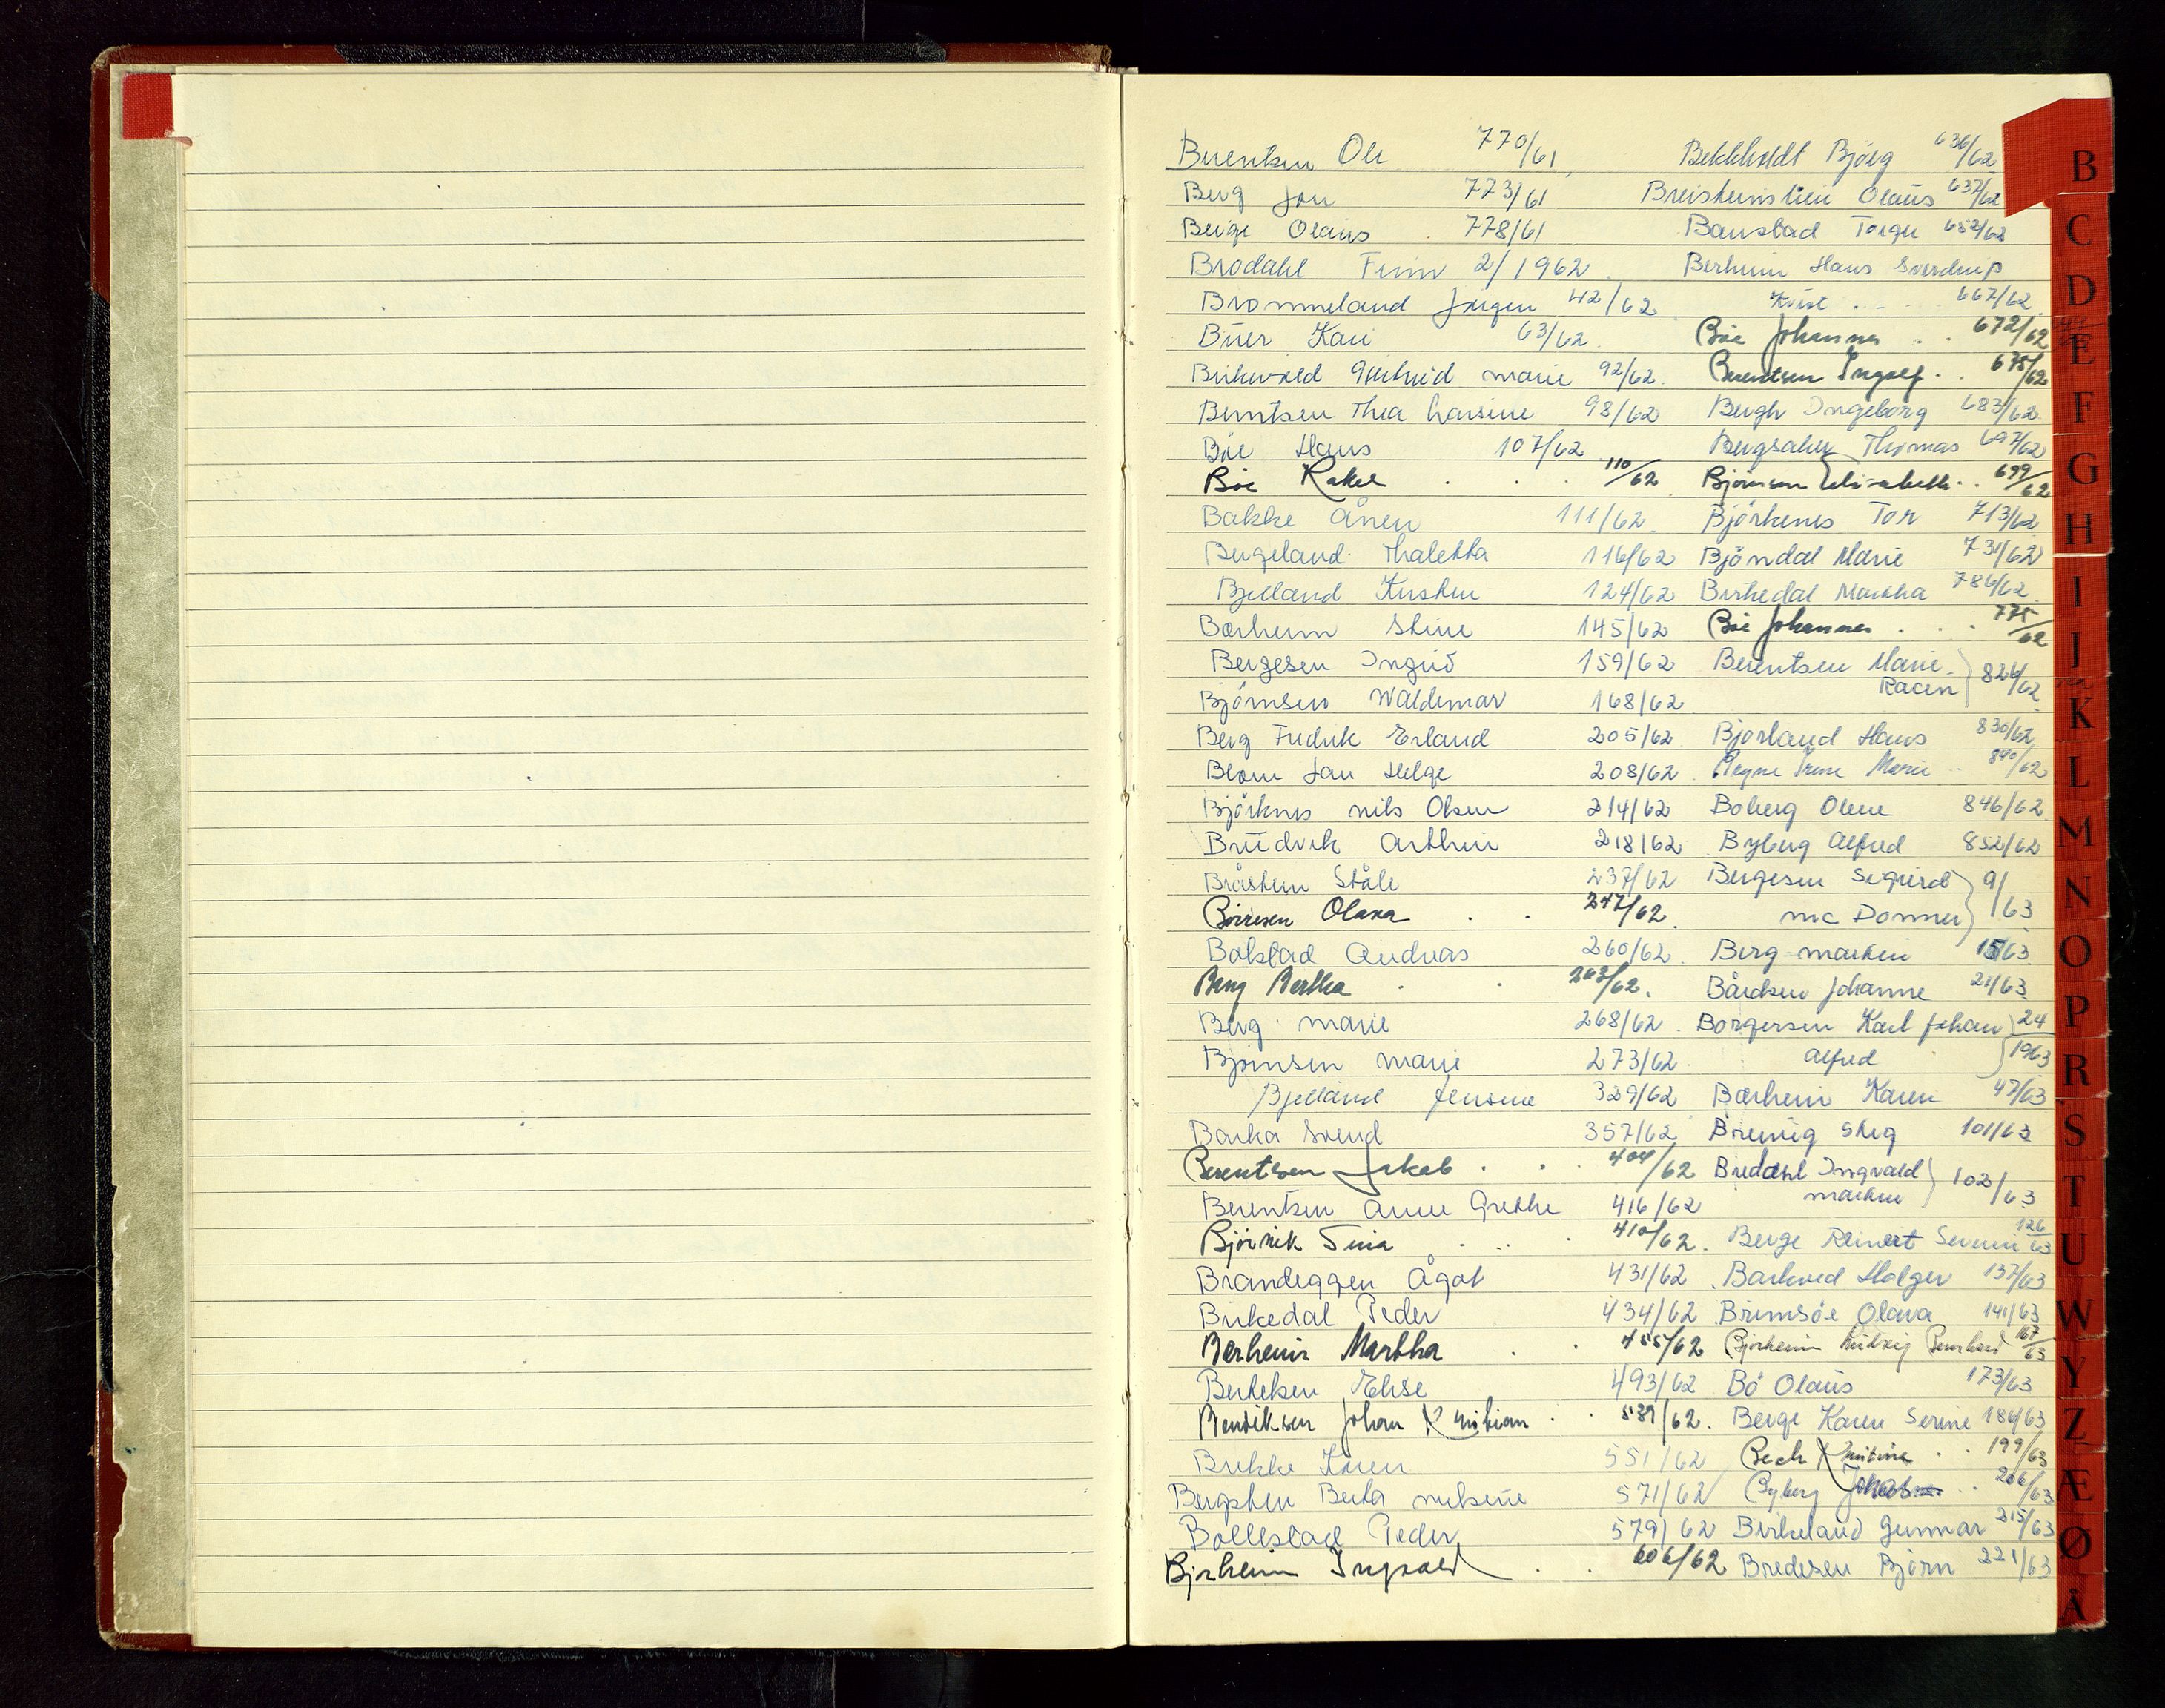 Berentsen Ole 770/61
Berg Jon 773/61
Berge Olaus 778/61
Brodahl Finn 2/1962
Brommeland Jørgen 42/62
Büer Kari 63/62
Birkevold Gudrid Marie 92/62
Berntsen Thea Lavsine 98/62
Böe Hans 107/62
Böe Rakel 110/62
Bakke Ånen 111/62
Bergeland Thaletta 116/62
Bjelland Kirsten 124/62
Bærheim Stine 145/62
Bergesen Ingrid 159/62
Björnsen Waldemar 168/62
Berg Fredrik Erland 205/62
Blom Jan Helge 208/62
Björknes Nils Olsen 214/62
Brudvik Arthur 218/62
Bråstein Ståle 237/62
Börresen Olava 247/62
Bokstad Andreas 260/62
Berg Bertha 263/62
Berg Marie 268/62
Björnsen Marie 273/62
Bjelland Jensine 329/62
Barka Svend 357/62
Berentsen Jakob 404/62
Berentsen Anne Grethe 416/62
Björvik Sina 410/62
Brandeggen Ågot 431/62
Birkedal Peder 434/62
Berheim Martha 455/62
Bertelsen Elise 493/62
Bendiksen Johan Kristian 539/62
Brekke Karen 551/62
Bergsten Berta 571/62
Bollestad Peder 579/62
Bjerheim Ingvald 606/62
Bekkholdt Bjørg 636/62
Breistenstein Olaus 637/62
Baustad Torger 652/62
Berheim Hans Sverdrup
667/62
Böe Johannes 672/62
Berentsen Ingolf 675/62
Bergh Ingeborg 683/62
Bergsaker Thomas 697/62
Björnsen Elisabeth 699/62
Björkenes Tor 713/62
Björndal Marie 731/62
Birkedal Martha 786/62
Böe Johannes 775/62
Berentsen Marie
Racin 826/62
Bjorland Hans 830/62
Irene Marie 840/62
Boberg Olene 846/62
Byberg Alfred 852/62
Bergesen Sigurd 9/63
mc Donner
Berg Marken 15/63
Bårdsen Johanne 21/63
Borgersen Karl Johan 24/1963
Alfred
Bærheim Karen 47/63
Breivig Stig 101/63
Bredahl Ingvald 102/63
Marken
Berge Reinert Severin 126/63
Barkved Holger 137/63
Brimsöe Olava 141/63
Bjerheim Ludvig 167/63
Bö Olaus 173/63
Berge Karen Serine 186/63
Bech Kristine 199/63
Byberg 206/63
Birkeland Gunnar 215/63
Bredesen Björn 221/63
B
C
D
E
F
G
H
I
J
K
L
M
N
O
P
R
S
T
U
W
Y
Z
Æ
Ø
Å